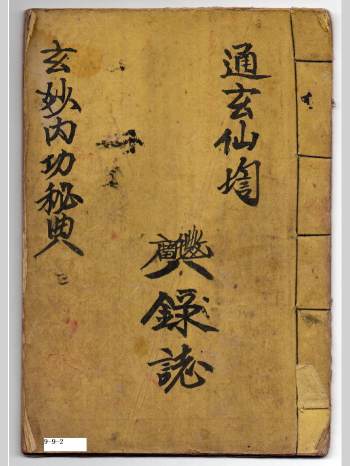 通玄仙
錄誌
玄妙内功秘典
三
9-9-2